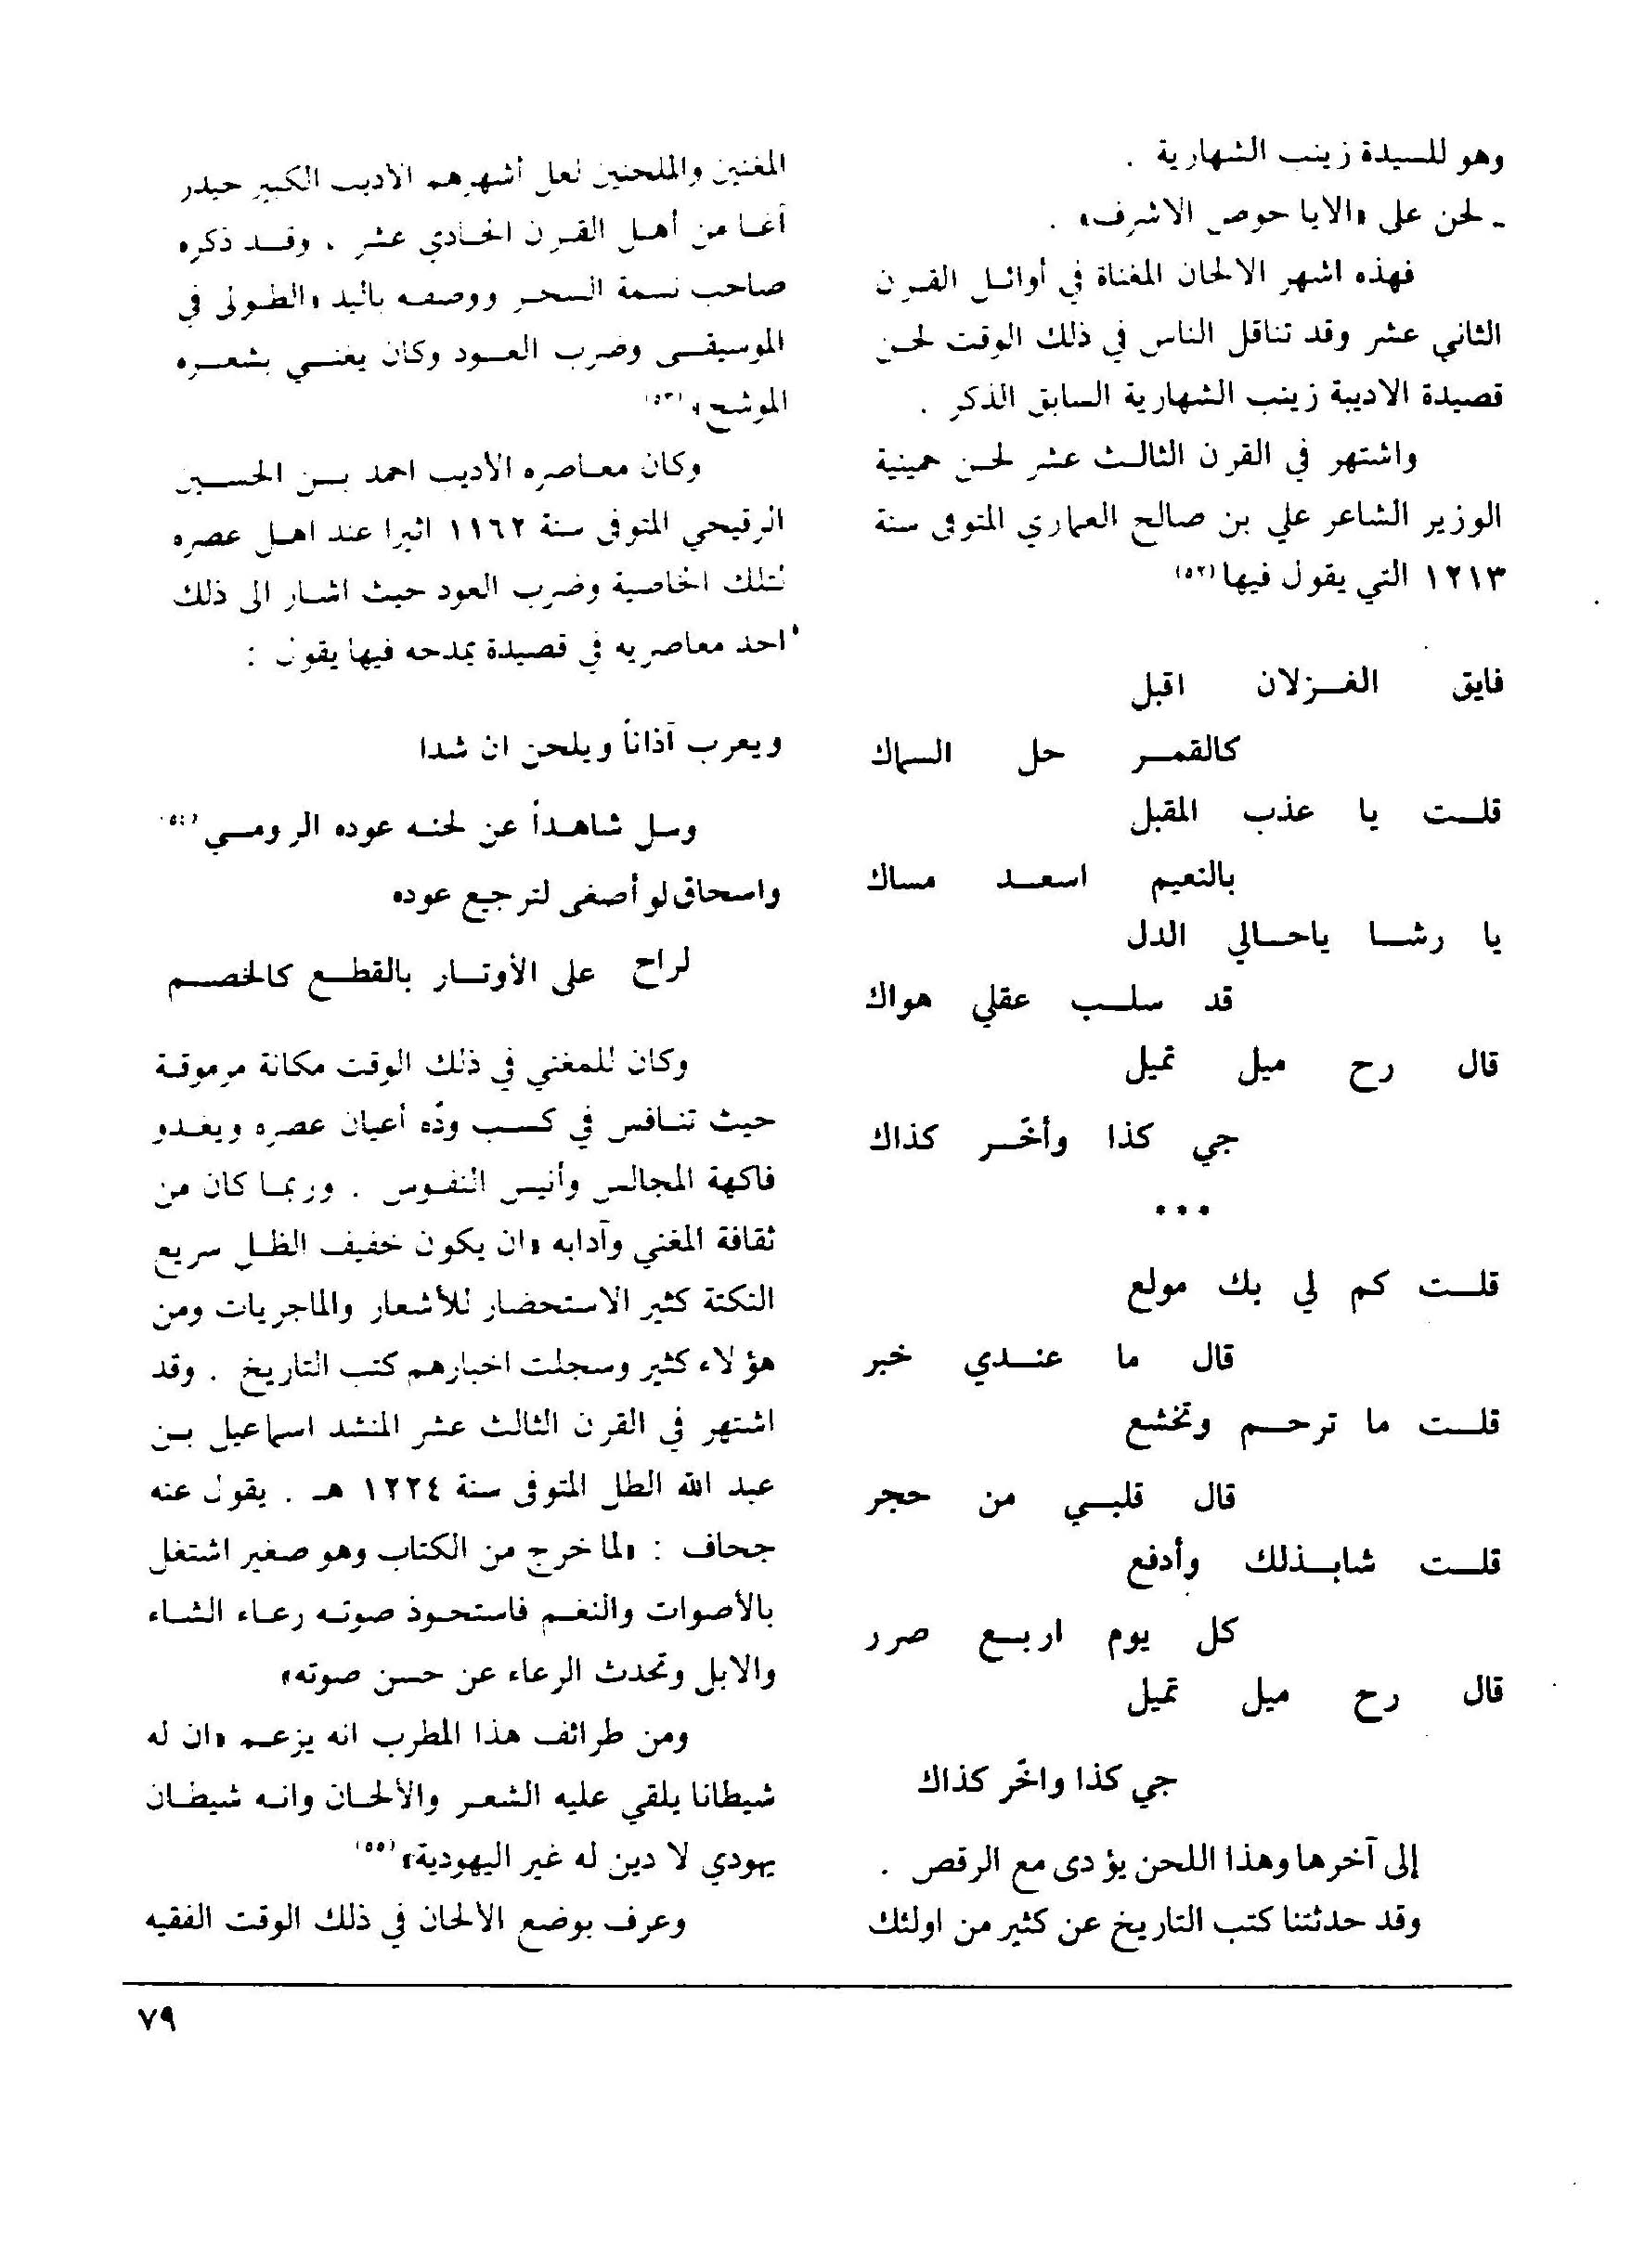 وهو للسيدة زينب الشهارية .
ـ لحن على «الا يا حوص الاشرف» .
فهذه اشهر الالحان المغناة في أوائل القرن
الثاني عشر وقد تناقل الناس في ذلك الوقت لحن
قصيدة الاديبة زينب الشهارية السابق الذكر .
واشتهر في القرن الثالث عشر لحن حمينية
الوزير الشاعر علي بن صالح العماري المتوفى سنة
١٢١٣ التي يقول فيها (٥٢)
فايق الغزلان اقبل
كالقمر حل السماك
قلت يا عذب المقبل
بالنعيم اسعد مساك
يا رشا ياحالي الدل
قد سلب عقلي هواك
قال رح ميل تميل
جي كذا وأخّر كذاك
* * *
قلت كم لي بك مولع
قال ما عندي خبر
قلت ما ترحم وتخشع
قال قلبي من حجر
قلت شابذلك وأدفع
كل يوم اربع صرر
قال رح ميل تميل
جي كذا واخّر كذاك
إلى آخرها وهذا اللحن يؤدى مع الرقص .
وقد حدثتنا كتب التاريخ عن كثير من اولئك
المغنين والملحنين لعل أشهرهم الاديب الكبير حيدر
أغا من أهل القرن الحادي عشر . وقد ذكره
صاحب نسمة السحر ووصفه باليد «الطولى في
الموسيقى وضرب العود وكان يغني بشعره
الموشح» (٥٣)
وكان معاصره الأديب احمد بن الحسين
الرقيحي المتوفى سنة ١١٦٢ اثيرا عند اهل عصره
لتلك الخاصية وضرب العود حيث اشار الى ذلك
احد معاصريه في قصيدة يمدحه فيها يقول :
ويعرب آذاناً ويلحن ان شدا
وسل شاهداً عن لحنه عوده الرومي (٥٤)
واسحاق لو أصغى لترجيع عوده
لراح على الأوتار بالقطع كالخصم
وكان للمغني في ذلك الوقت مكانة مرموقة
حيث تنافس في كسب ودّه أعيان عصره ويغدو
فاكهة المجالس وأنيس النفوس . وربما كان من
ثقافة المغني وآدابه «ان يكون خفيف الظل سريع
النكتة كثير الاستحضار للأشعار والماجريات ومن
هؤلاء كثير وسجلت اخبارهم كتب التاريخ . وقد
اشتهر في القرن الثالث عشر المنشد اسماعيل بن
عبد الله الطل المتوفى سنة ١٢٢٤ هـ . يقول عنه
جحاف : «لما خرج من الكتاب وهو صغير اشتغل
بالأصوات والنغم فاستحوذ صوته رعاء الشاء
والابل وتحدث الرعاء عن حسن صوته»
ومن طرائف هذا المطرب انه يزعم «ان له
شيطانا يلقي عليه الشعر والألحان وانه شيطان
يهودي لا دين له غير اليهودية» (٥٥)
وعرف بوضع الالحان في ذلك الوقت الفقيه
٧٩